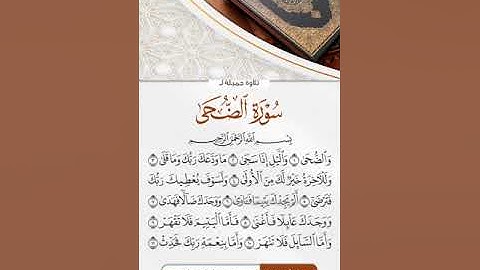 تلاوة جميلة لـ
سُورَةُ الضُّحَى
بِسْمِ اللَّهِ الرَّحْمَٰنِ الرَّحِيمِ
وَالضُّحَى ۝ وَاللَّيْلِ إِذَا سَجَى ۝ مَا وَدَّعَكَ رَبُّكَ وَمَا قَلَى ۝
وَلَلْآخِرَةُ خَيْرٌ لَكَ مِنَ الْأُولَى ۝ وَلَسَوْفَ يُعْطِيكَ رَبُّكَ
فَتَرْضَى ۝ أَلَمْ يَجِدْكَ يَتِيمًا فَآوَى ۝ وَوَجَدَكَ ضَالًّا فَهَدَى ۝
وَوَجَدَكَ عَائِلًا فَأَغْنَى ۝ فَأَمَّا الْيَتِيمَ فَلَا تَقْهَرْ ۝
وَأَمَّا السَّائِلَ فَلَا تَنْهَرْ ۝ وَأَمَّا بِنِعْمَةِ رَبِّكَ فَحَدِّثْ ۝